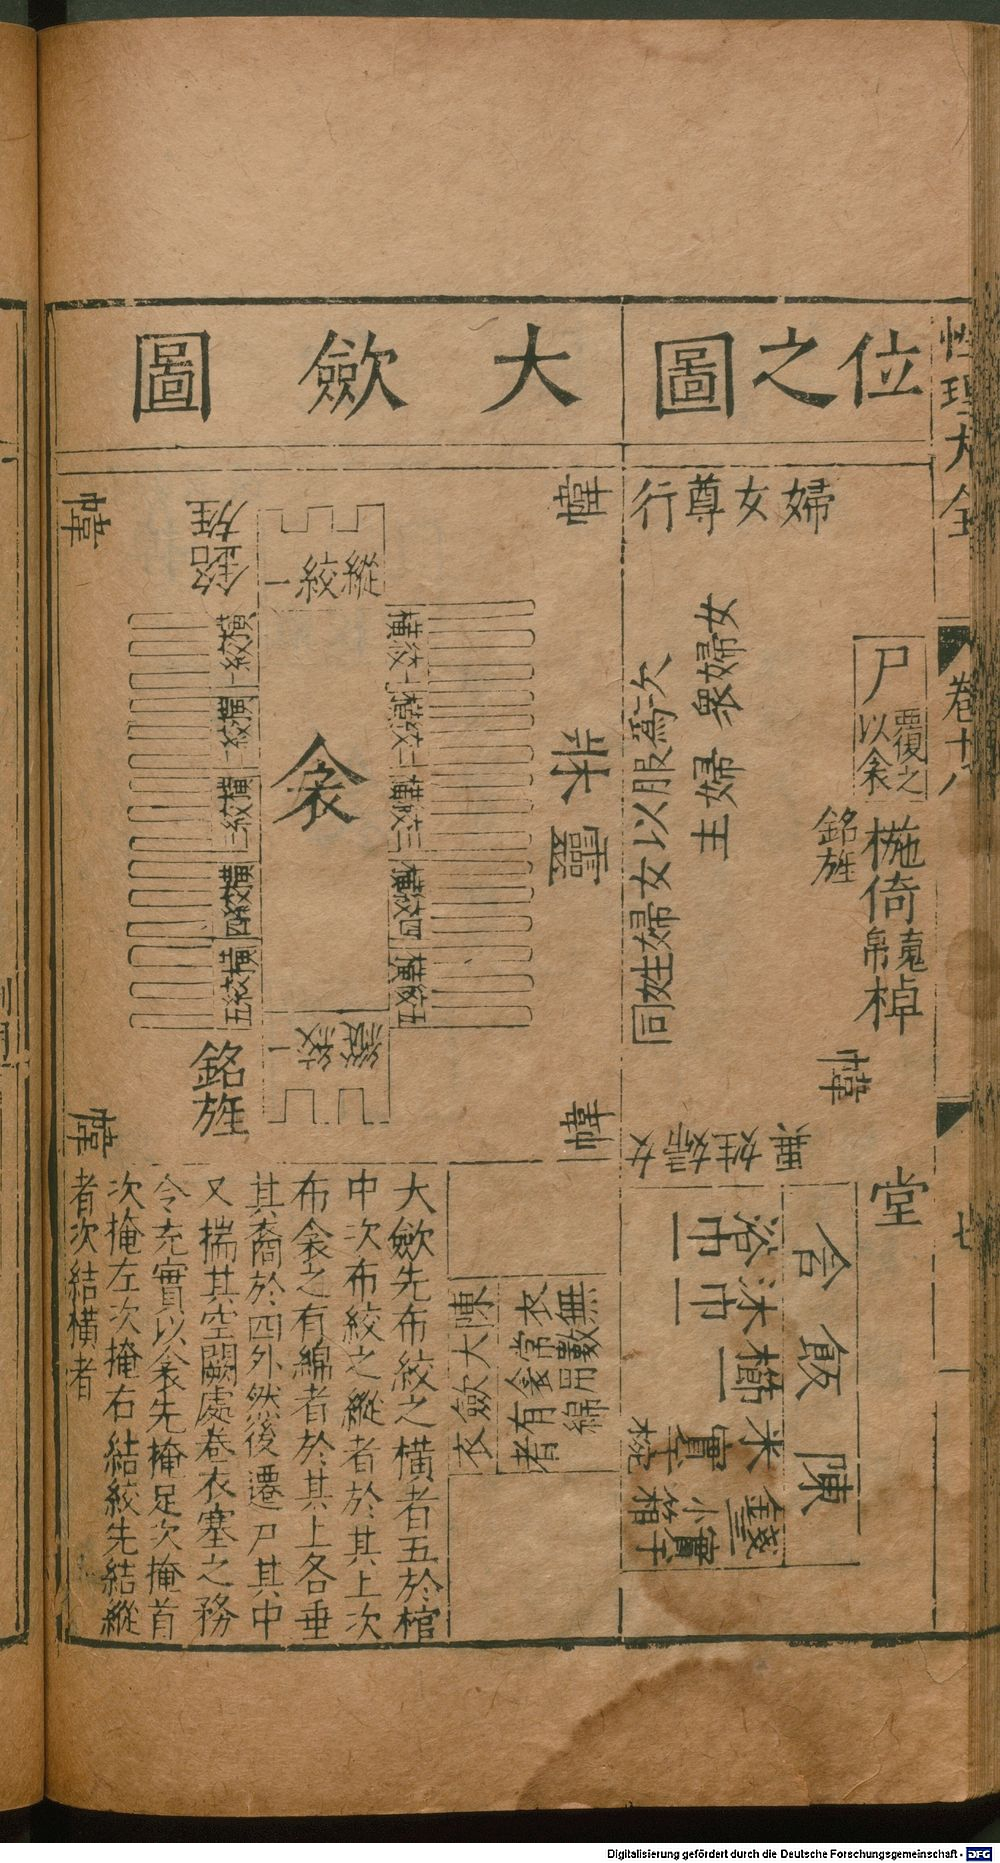 性理大全
卷十八
七
位之圖
尸
覆之
以衾
銘旌
椸
倚
帛
棹
幃
堂
婦女尊行
衆婦女
主婦
同姓婦女以服爲次
婦女
陳
飯
含
浴巾一
沐巾一
櫛一
米
實
錢三
實于
小箱
大歛圖
幃
幃
幃
幃
銘旌
縱絞一
橫絞一
橫絞二
橫絞三
橫絞四
橫絞五
衾
橫絞一
橫絞二
橫絞三
橫絞四
橫絞五
縱絞一
銘旌
靈
陳大歛衣
衣常衾有
無數用綿
者
大歛先布絞之橫者五於棺
中次布絞之縱者於其上次
布衾之有綿者於其上各垂
其裔於四外然後遷尸其中
又揣其空闕處卷衣塞之務
令充實以衾先掩足次掩首
次掩左次掩右結絞先結縱
者次結橫者
Digitalisierung gefördert durch die Deutsche Forschungsgemeinschaft - DFG